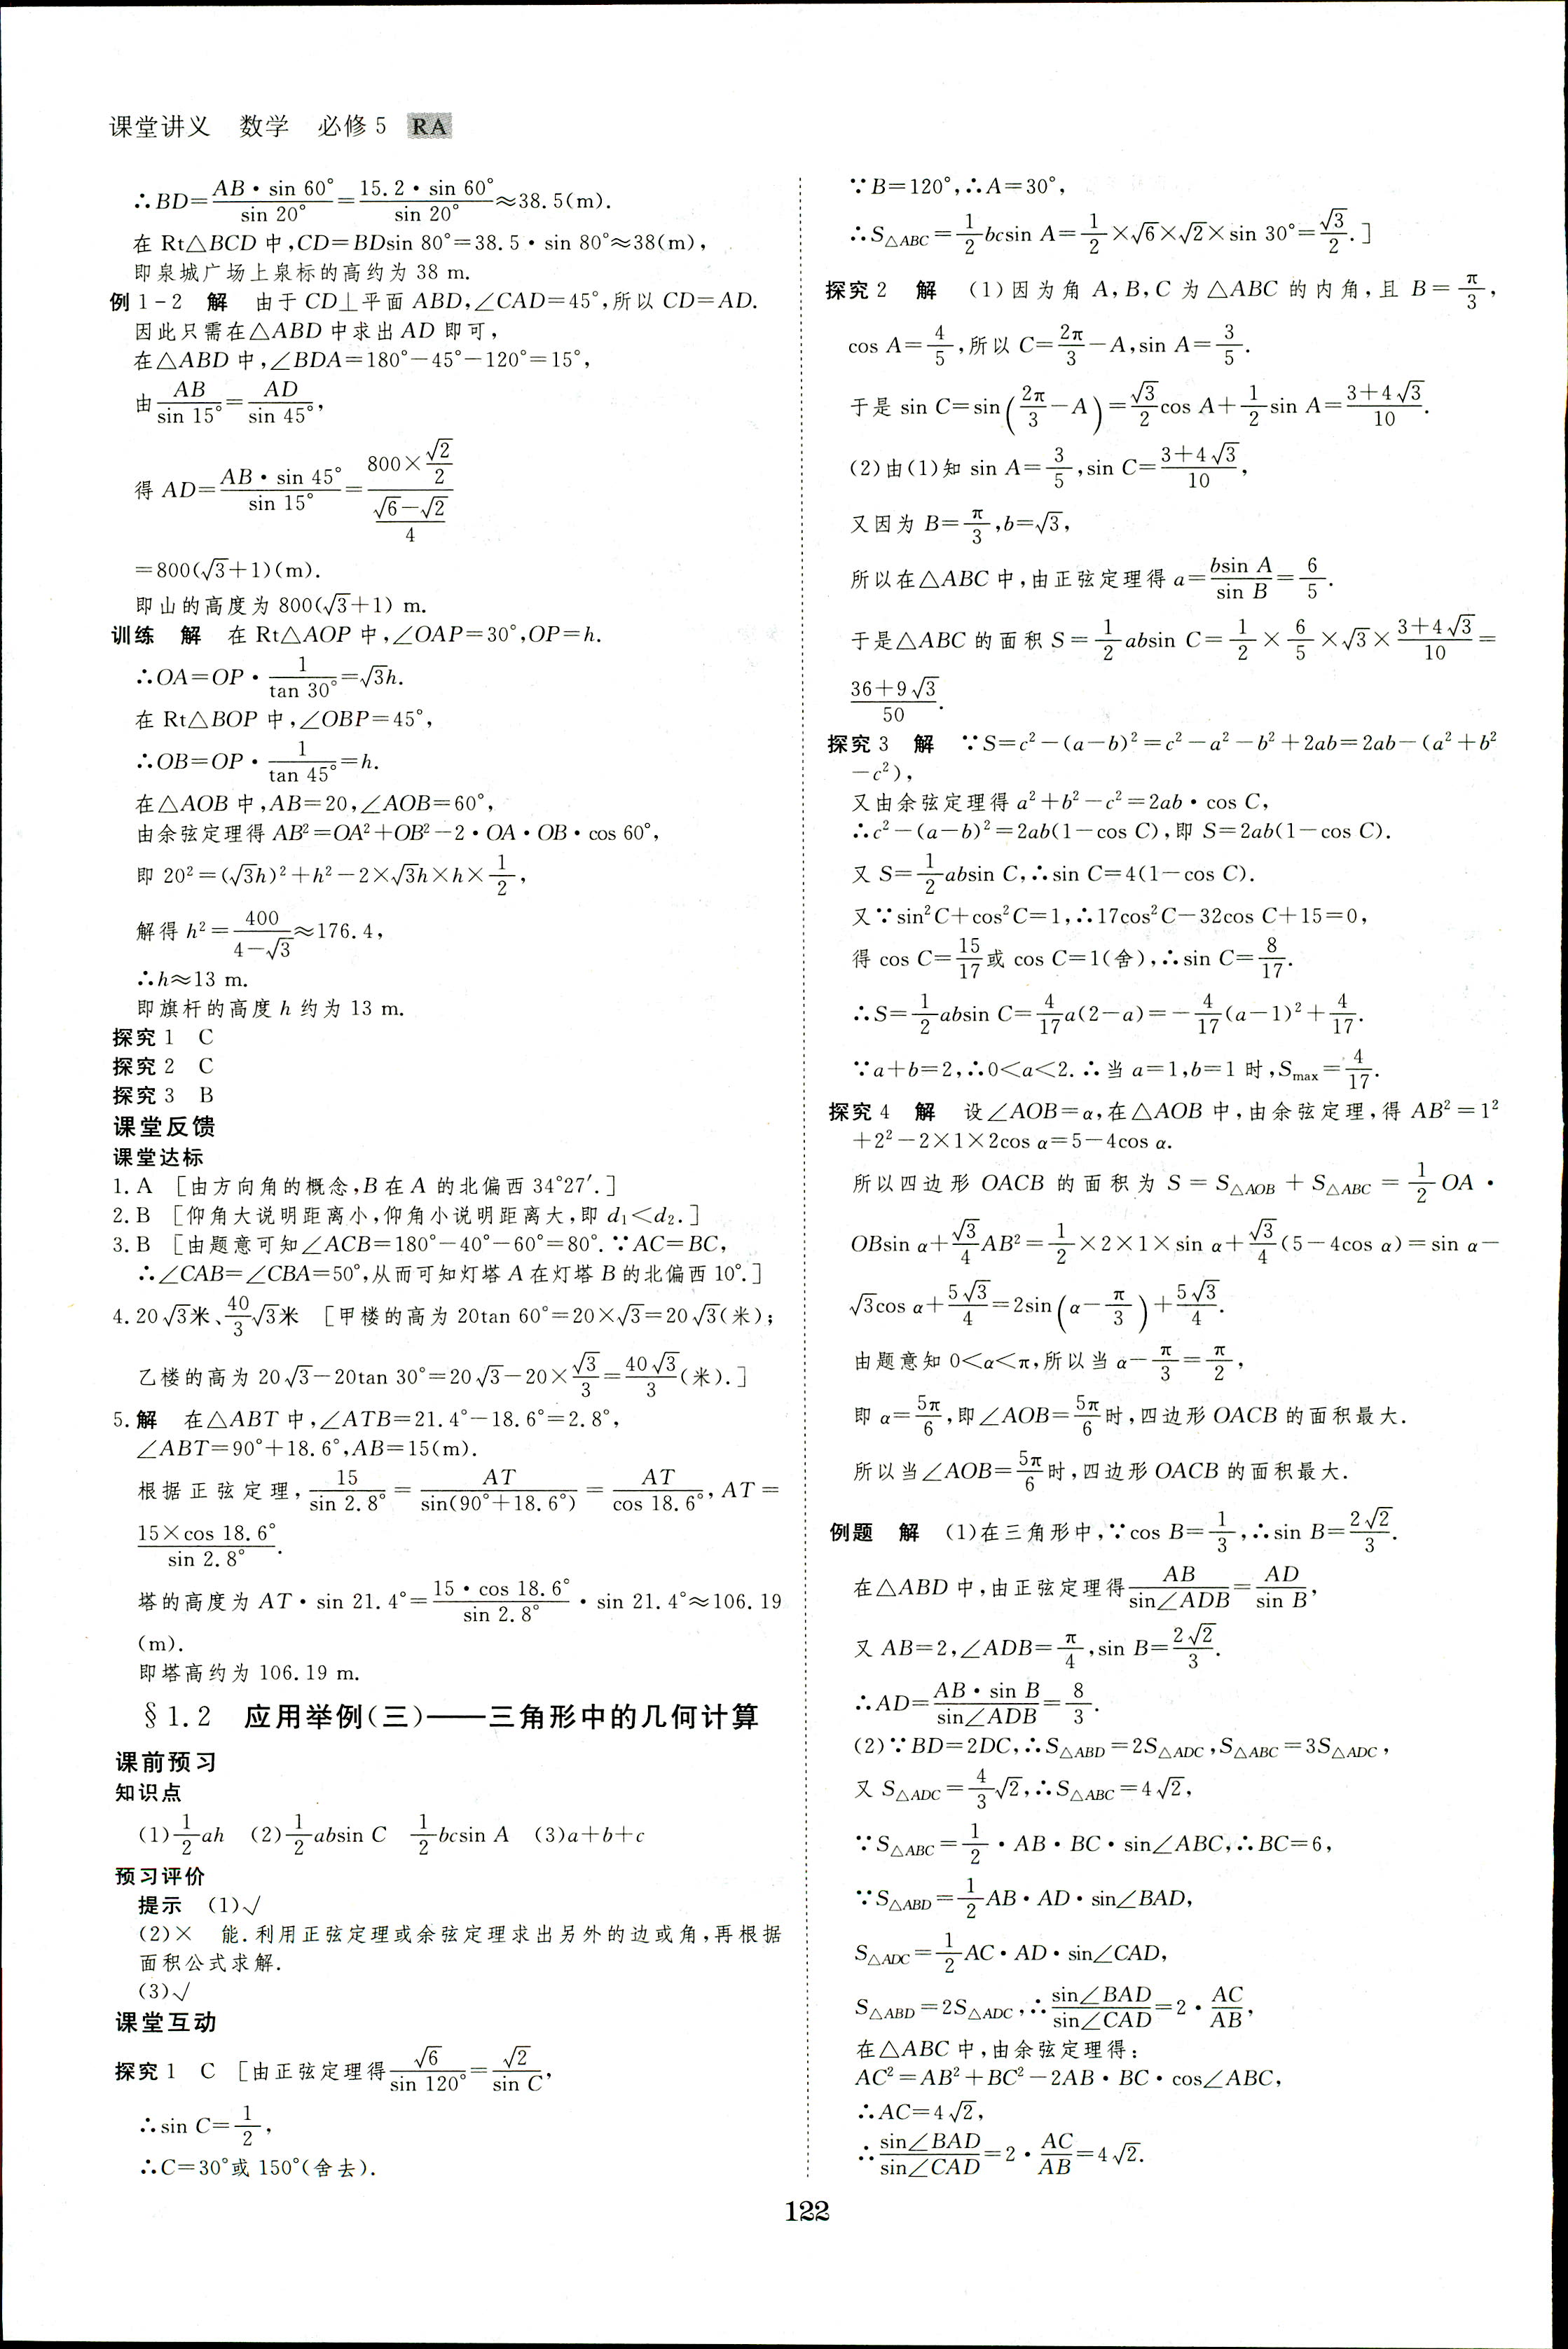 课堂讲义 数学 必修5 RA
∴BD=\frac{AB·sin 60°}{sin 20°}=\frac{15.2·sin 60°}{sin 20°}≈38.5(m).
在 Rt△BCD 中,CD=BDsin 80°=38.5·sin 80°≈38(m),
即泉城广场上泉标的高约为 38 m.
例 1-2 解 由于 CD⊥平面 ABD,∠CAD=45°,所以 CD=AD.
因此只需在△ABD 中求出 AD 即可,
在△ABD 中,∠BDA=180°-45°-120°=15°,
由\frac{AB}{sin 15°}=\frac{AD}{sin 45°},
得 AD=\frac{AB·sin 45°}{sin 15°}=\frac{800×\frac{√2}{2}}{\frac{√6-√2}{4}}
=800(√3+1)(m).
即山的高度为 800(√3+1) m.
训练 解 在 Rt△AOP 中,∠OAP=30°,OP=h.
∴OA=OP·\frac{1}{tan 30°}=√3h.
在 Rt△BOP 中,∠OBP=45°,
∴OB=OP·\frac{1}{tan 45°}=h.
在△AOB 中,AB=20,∠AOB=60°,
由余弦定理得 AB²=OA²+OB²-2·OA·OB·cos 60°,
即 20²=(√3h)²+h²-2×√3h×h×\frac{1}{2},
解得 h²=\frac{400}{4-√3}≈176.4,
∴h≈13 m.
即旗杆的高度 h 约为 13 m.
探究 1 C
探究 2 C
探究 3 B
课堂反馈
课堂达标
1. A [由方向角的概念,B 在 A 的北偏西 34°27′.]
2. B [仰角大说明距离小,仰角小说明距离大,即 d₁<d₂.]
3. B [由题意可知∠ACB=180°-40°-60°=80°.∵AC=BC,
∴∠CAB=∠CBA=50°,从而可知灯塔 A 在灯塔 B 的北偏西 10°.]
4. 20√3米、\frac{40}{3}√3米 [甲楼的高为 20tan 60°=20×√3=20√3(米);
乙楼的高为 20√3-20tan 30°=20√3-20×\frac{√3}{3}=\frac{40√3}{3}(米).]
5. 解 在△ABT 中,∠ATB=21.4°-18.6°=2.8°,
∠ABT=90°+18.6°,AB=15(m).
根据正弦定理,\frac{15}{sin 2.8°}=\frac{AT}{sin(90°+18.6°)}=\frac{AT}{cos 18.6°},AT=
\frac{15×cos 18.6°}{sin 2.8°}.
塔的高度为 AT·sin 21.4°=\frac{15·cos 18.6°}{sin 2.8°}·sin 21.4°≈106.19
(m).
即塔高约为 106.19 m.
§1.2 应用举例(三)——三角形中的几何计算
课前预习
知识点
(1)\frac{1}{2}ah (2)\frac{1}{2}absin C \frac{1}{2}bcsin A (3)a+b+c
预习评价
提示 (1)√
(2)× 能.利用正弦定理或余弦定理求出另外的边或角,再根据
面积公式求解.
(3)√
课堂互动
探究 1 C [由正弦定理得\frac{√6}{sin 120°}=\frac{√2}{sin C},
∴sin C=\frac{1}{2},
∴C=30°或 150°(舍去).
∵B=120°,∴A=30°,
∴S△ABC=\frac{1}{2}bcsin A=\frac{1}{2}×√6×√2×sin 30°=\frac{√3}{2}.]
探究 2 解 (1)因为角 A,B,C 为△ABC 的内角,且 B=\frac{π}{3},
cos A=\frac{4}{5},所以 C=\frac{2π}{3}-A,sin A=\frac{3}{5}.
于是 sin C=sin(\frac{2π}{3}-A)=\frac{√3}{2}cos A+\frac{1}{2}sin A=\frac{3+4√3}{10}.
(2)由(1)知 sin A=\frac{3}{5},sin C=\frac{3+4√3}{10},
又因为 B=\frac{π}{3},b=√3,
所以在△ABC 中,由正弦定理得 a=\frac{bsin A}{sin B}=\frac{6}{5}.
于是△ABC 的面积 S=\frac{1}{2}absin C=\frac{1}{2}×\frac{6}{5}×√3×\frac{3+4√3}{10}=
\frac{36+9√3}{50}.
探究 3 解 ∵S=c²-(a-b)²=c²-a²-b²+2ab=2ab-(a²+b²
-c²),
又由余弦定理得 a²+b²-c²=2ab·cos C,
∴c²-(a-b)²=2ab(1-cos C),即 S=2ab(1-cos C).
又 S=\frac{1}{2}absin C,∴sin C=4(1-cos C).
又∵sin²C+cos²C=1,∴17cos²C-32cos C+15=0,
得 cos C=\frac{15}{17}或 cos C=1(舍),∴sin C=\frac{8}{17}.
∴S=\frac{1}{2}absin C=\frac{4}{17}a(2-a)=-\frac{4}{17}(a-1)²+\frac{4}{17}.
∵a+b=2,∴0<a<2.∴当 a=1,b=1 时,Smax=\frac{4}{17}.
探究 4 解 设∠AOB=α,在△AOB 中,由余弦定理,得 AB²=1²
+2²-2×1×2cos α=5-4cos α.
所以四边形 OACB 的面积为 S=S△AOB+S△ABC=\frac{1}{2}OA·
OBsin α+\frac{√3}{4}AB²=\frac{1}{2}×2×1×sin α+\frac{√3}{4}(5-4cos α)=sin α-
√3cos α+\frac{5√3}{4}=2sin(α-\frac{π}{3})+\frac{5√3}{4}.
由题意知 0<α<π,所以当 α-\frac{π}{3}=\frac{π}{2},
即 α=\frac{5π}{6},即∠AOB=\frac{5π}{6}时,四边形 OACB 的面积最大.
所以当∠AOB=\frac{5π}{6}时,四边形 OACB 的面积最大.
例题 解 (1)在三角形中,∵cos B=\frac{1}{3},∴sin B=\frac{2√2}{3}.
在△ABD 中,由正弦定理得\frac{AB}{sin∠ADB}=\frac{AD}{sin B},
又 AB=2,∠ADB=\frac{π}{4},sin B=\frac{2√2}{3}.
∴AD=\frac{AB·sin B}{sin∠ADB}=\frac{8}{3}.
(2)∵BD=2DC,∴S△ABD=2S△ADC,S△ABC=3S△ADC,
又 S△ADC=\frac{4}{3}√2,∴S△ABC=4√2,
∵S△ABC=\frac{1}{2}·AB·BC·sin∠ABC,∴BC=6,
∵S△ABD=\frac{1}{2}AB·AD·sin∠BAD,
S△ADC=\frac{1}{2}AC·AD·sin∠CAD,
S△ABD=2S△ADC,∴\frac{sin∠BAD}{sin∠CAD}=2·\frac{AC}{AB},
在△ABC 中,由余弦定理得:
AC²=AB²+BC²-2AB·BC·cos∠ABC,
∴AC=4√2,
∴\frac{sin∠BAD}{sin∠CAD}=2·\frac{AC}{AB}=4√2.
122